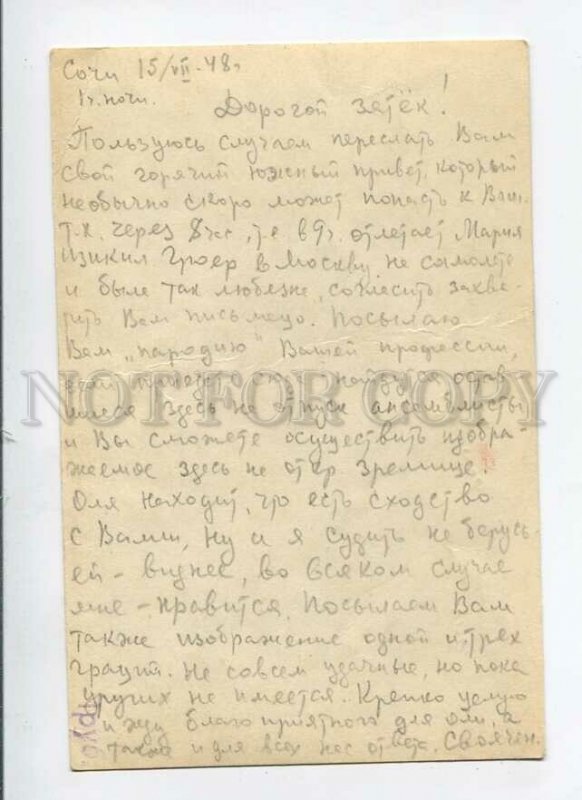 Сочи 15/VII-48г
1ч. ночи.
Дорогой зятёк!
Пользуюсь случаем переслать Вам
свой горячий южный привет, который
необычно скоро может попасть к Вам,
т.к. через 8 час, т.е. в 9ч. отлетает Мария
в Москву на самолете
и была так любезна, согласить захва-
тить Вам письмецо. Посылаю
Вам „пародию" Вашей профессии,
NOT FOR COPY
здесь на отпуск ансамблисты
и Вы сможете осуществить изобра-
жаемое здесь на откр зрелище.
Оля находит, что есть сходство
с Вами, ну а я судить не берусь-
ей - виднее, во всяком случае
мне - нравится. Посылаем Вам
также изображение одной из трех
граций. Не совсем удачные, но пока
других не имеется. Крепко целую
и жду благоприятного для Оли, а
также и для всех нас ответа. Своячен.